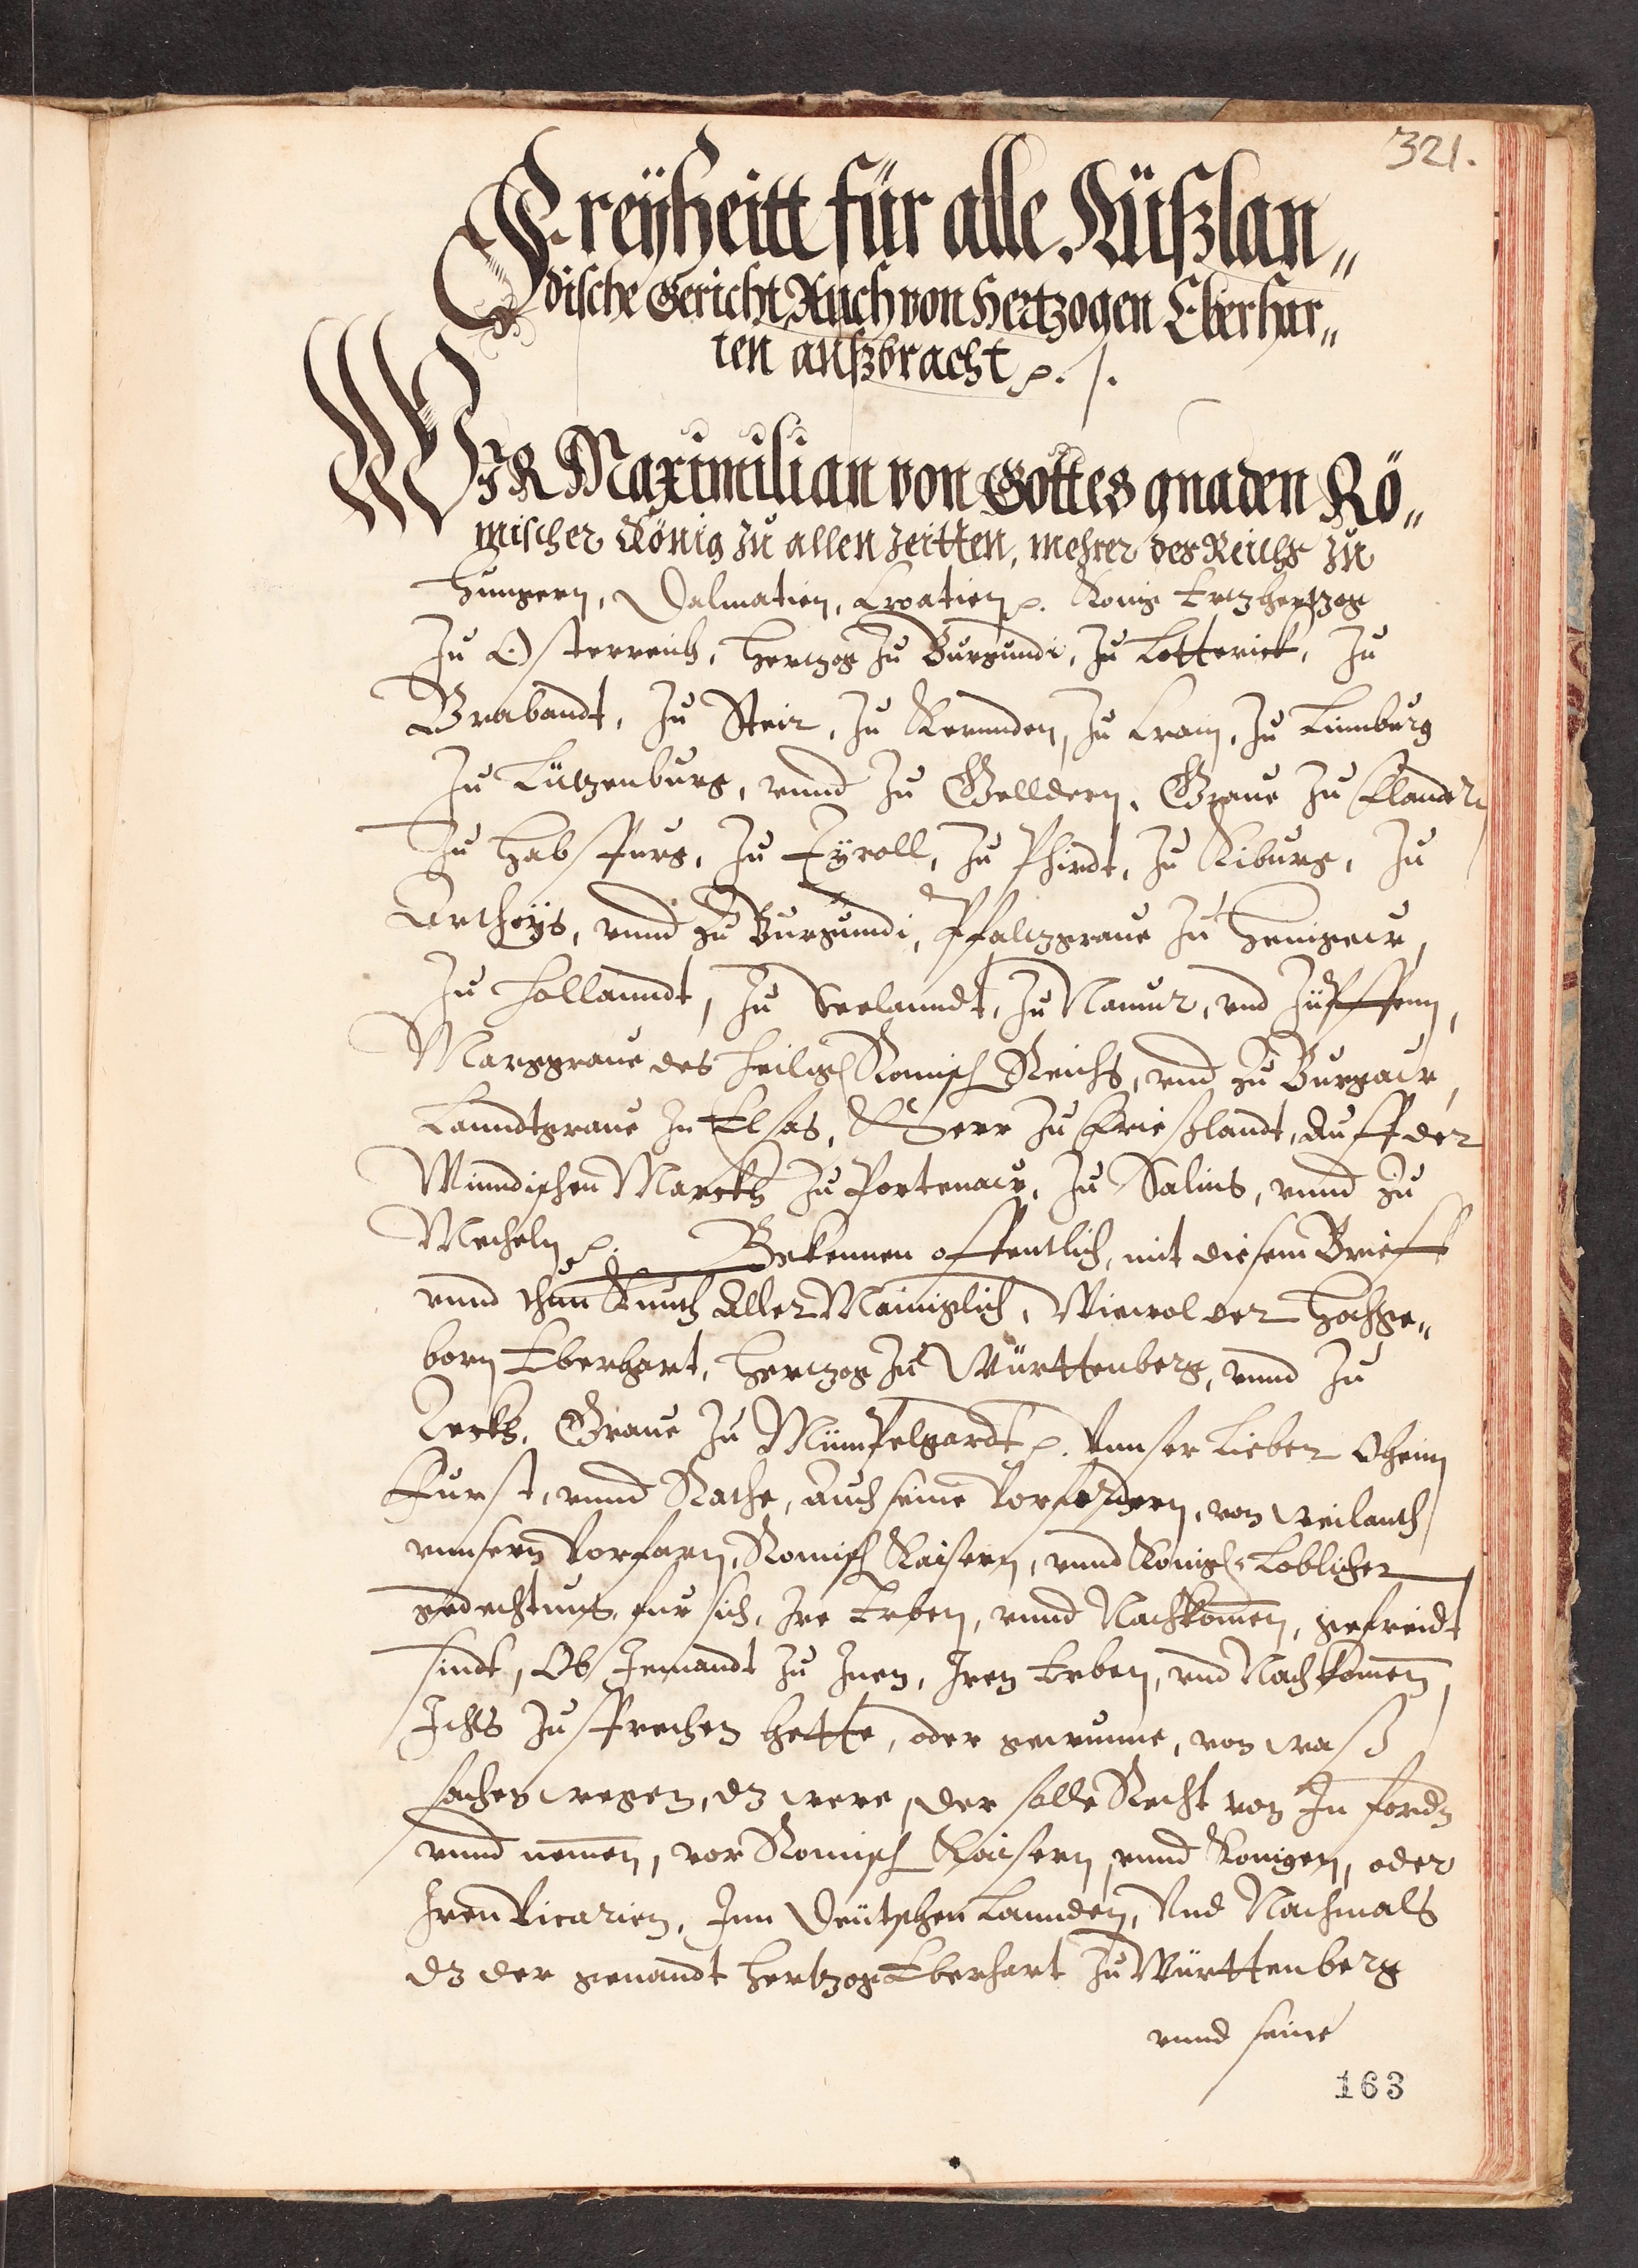 321.
Freÿheitt für alle Außlan„
dische Gericht Auch von Hertzogen Eberhar„
ten außbracht ꝛc. /.
WIR Maximilian von Gottes gnaden Rö„
mischer König zu allen zeitten, mehrer des Reichs zu
Hungern, Dalmatien, Croatien ꝛc. König Ertzhertzog
Zu Osterreich, Hertzog Zu Burgundi, Zu Lotterick, Zu
Brabandt, Zu Steir, Zu Kernnden, Zu Crain, Zu Limburg
Zu Lützenburg, vnnd Zu Gelldern, Graue Zu Flandern
Zu Habspurg, Zu Tÿroll, Zu Phirdt, Zu Kiburg, Zu
Arthoÿs, vnnd zu Burgundi, Pfaltzgraue Zu Henigew,
Zu Hollanndt, Zu Seelanndt, Zu Namur, vnd Zütpfenn,
Marggraue des Heiligen Römisch Reichs, vnd zu Burgaw,
Lanndtgraue In Elsas, Herr Zu Frießlandt, Auff der
Winndischen Marckh Zu Portenaw, Zu Salins, vnnd zu
Mecheln ꝛc. Bekennen offentlich, mit diesem Brieff
vnnd thun Kunth Aller Mainiglich, Wiewol der Hochge„
born Eberhart, Hertzog Zu Württenberg, vnnd Zu
Teckh, Graue Zu Mümpelgardt ꝛc. Vnnser Lieber Oheim
Furst, vnnd Rathe, auch seine Vorfordern, von weilanth
vnnsern Vorfarn, Römisch Kaisern, vnnd Königen Loblicher
gedechtnuß, fur sich, Ire Erben, vnnd Nachkomen, gefreidt
sindt, Ob Jemandt Zu Inen, Iren Erben, vnd Nachkomen,
Ichts Zu sprechen hette, oder gewunne, von waß
sachen wegen, dz were, der solle Recht von In fordn
vnnd nemen, vor Römisch Kaisern, vnnd Königen, oder
Iren Vicarien, Inn Deütschen Lannden, Vnd Nachmals
dz der genandt Hertzog Eberhart Zu Württenberg
vnnd seine
163